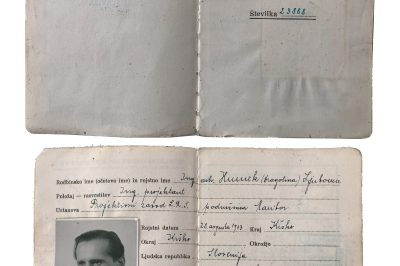 Številka 23868
Rodbinsko ime (očetovo ime) in rojstno ime Ing. arh. Humek (Dragotina) Ljubomir
Položaj – namestitev Ing. projektant
Ustanova Projektivni zavod L.R.S.
Rojstni datum 28. avgusta 1913 Kraj Krško
Okraj Krško Okrožje
Ljudska republika Slovenija